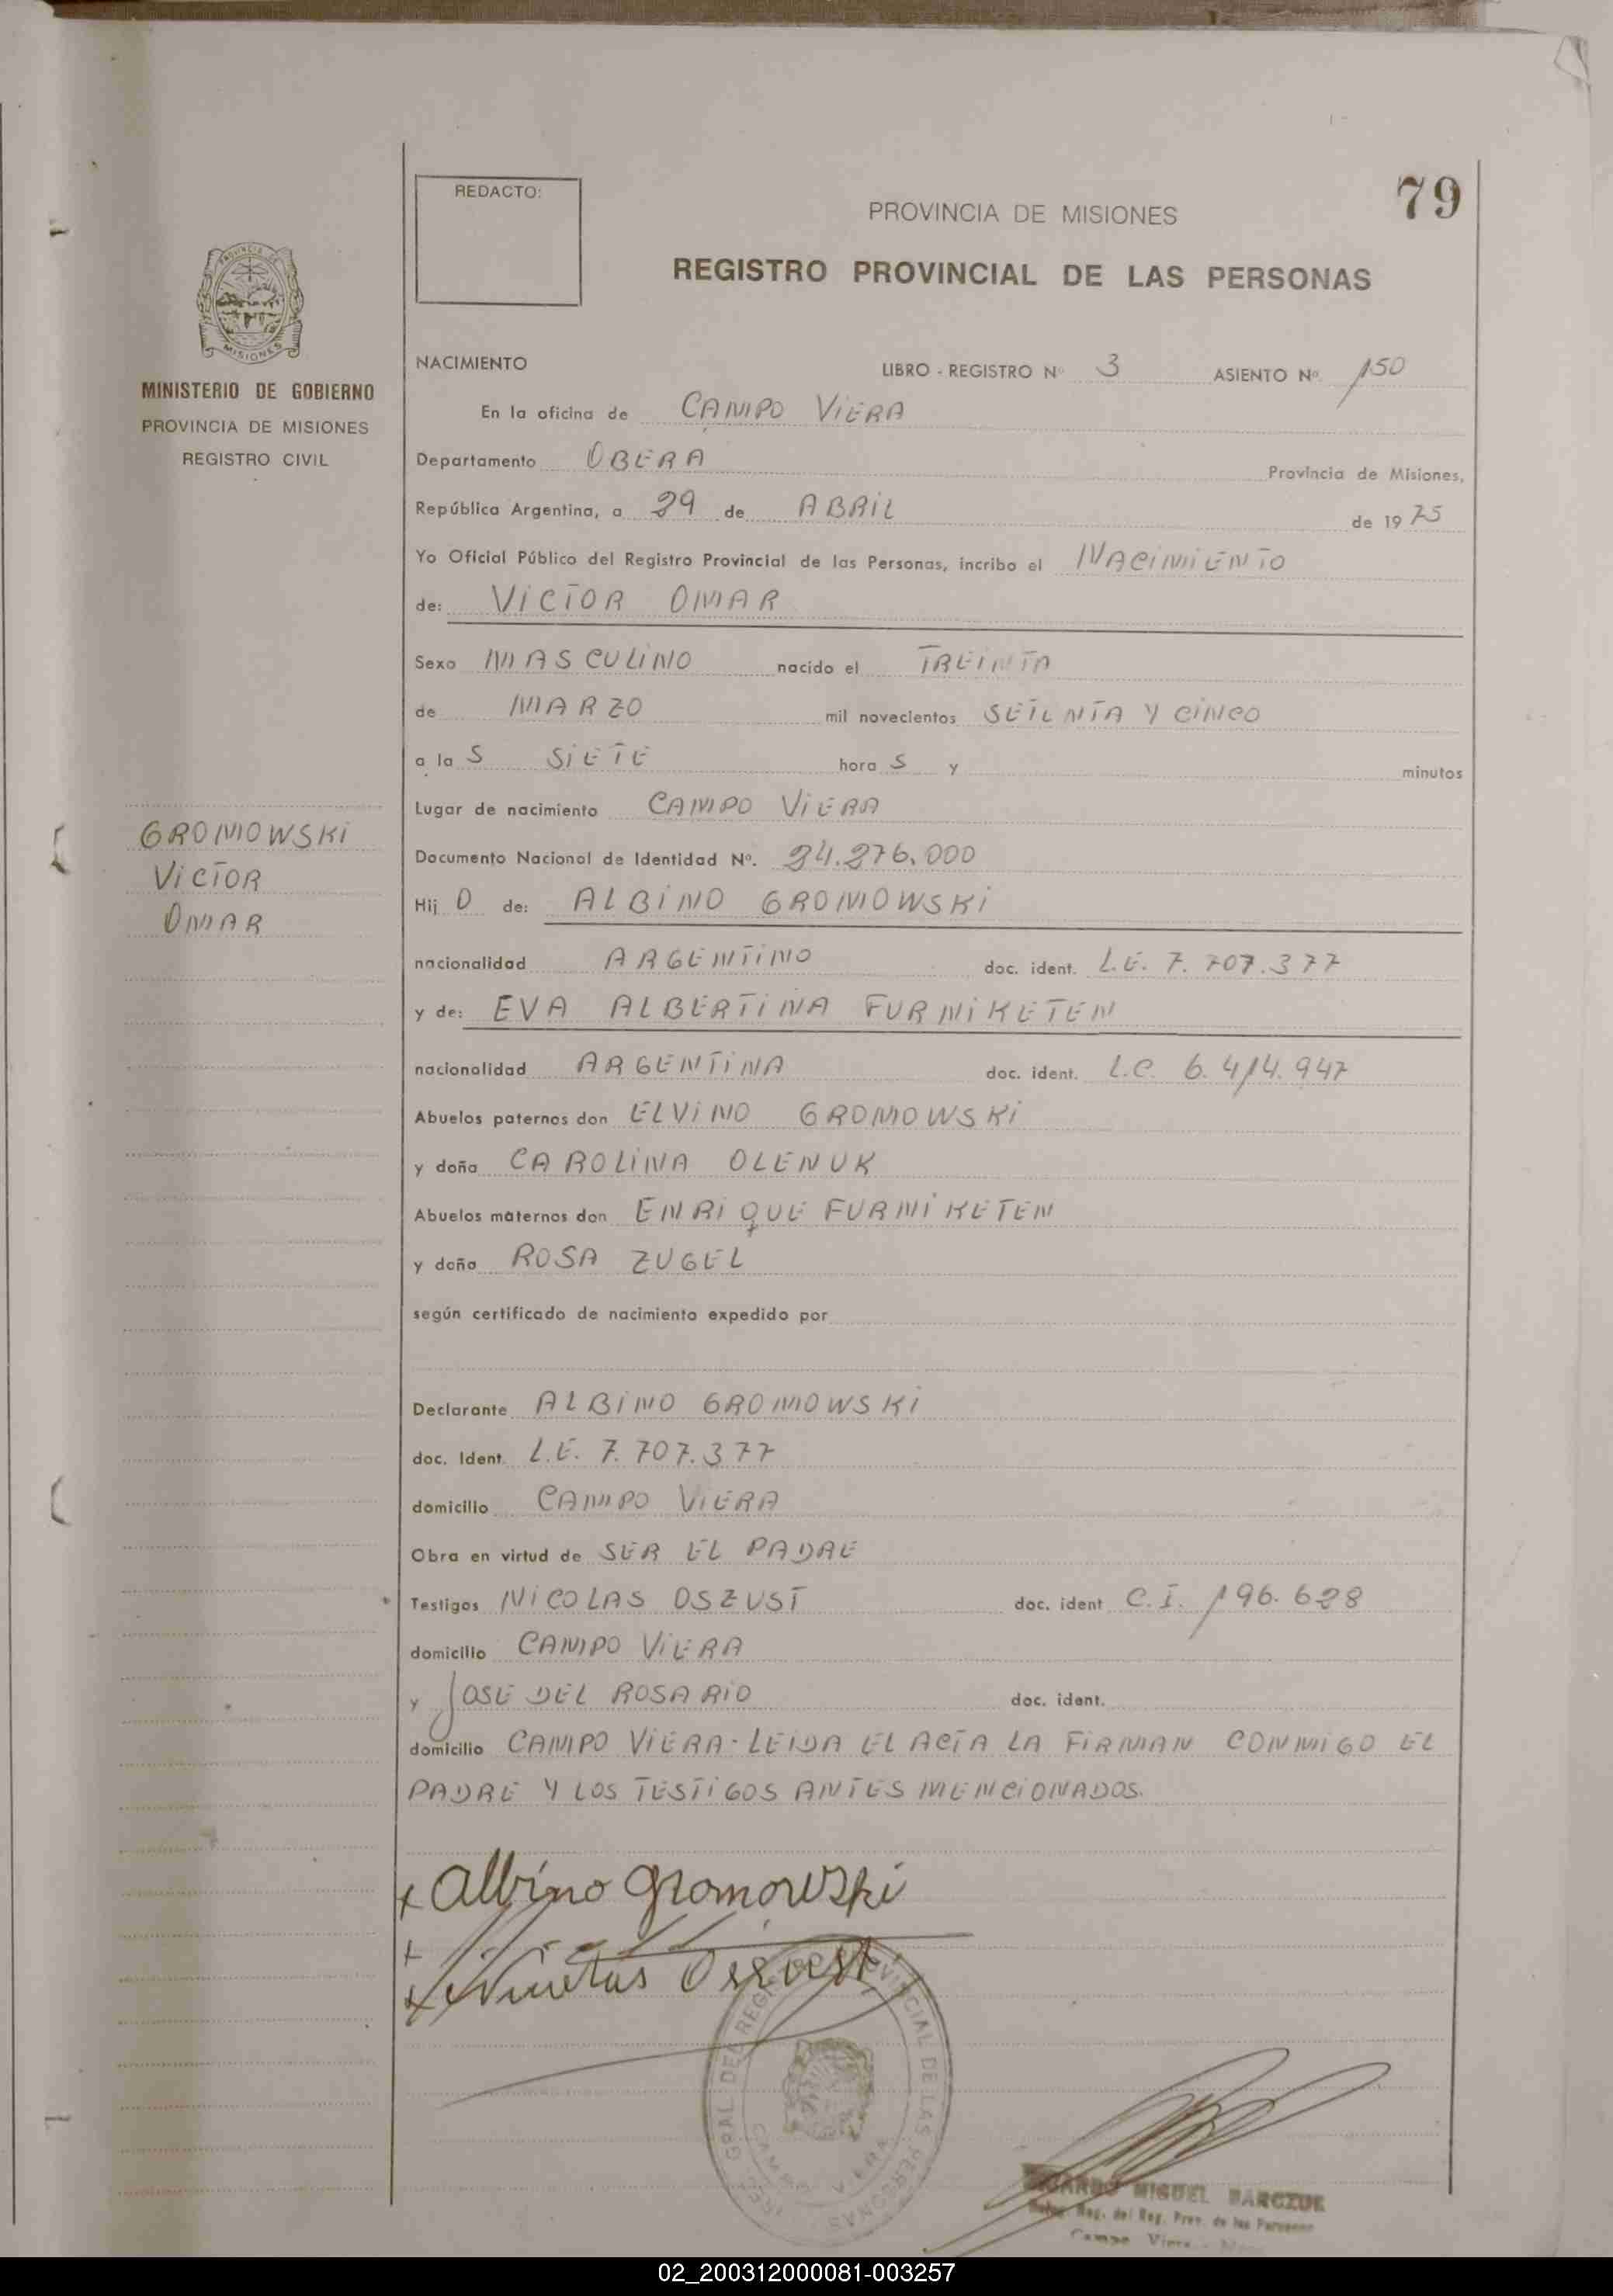 79
REDACTO:
PROVINCIA DE MISIONES
REGISTRO PROVINCIAL DE LAS PERSONAS
PROVINCIA DE
MISIONES
MINISTERIO DE GOBIERNO
PROVINCIA DE MISIONES
REGISTRO CIVIL
GROMOWSKI
VICTOR
OMAR
NACIMIENTO LIBRO - REGISTRO Nº 3 ASIENTO Nº 150
En la oficina de CAMPO VIERA
Departamento OBERA Provincia de Misiones,
República Argentina, a 29 de ABRIL de 1975
Yo Oficial Público del Registro Provincial de las Personas, incribo el NACIMIENTO
de: VICTOR OMAR
Sexo MASCULINO nacido el TREINTA
de MARZO mil novecientos SETENTA Y CINCO
a la S SIETE hora S y minutos
Lugar de nacimiento CAMPO VIERA
Documento Nacional de Identidad Nº. 24.276.000
Hij O de: ALBINO GROMOWSKI
nacionalidad ARGENTINO doc. ident. L.E. 7.707.377
y de: EVA ALBERTINA FURNIKETEN
nacionalidad ARGENTINA doc. ident. L.C. 6.414.947
Abuelos paternos don ELVINO GROMOWSKI
y doña CAROLINA OLENUK
Abuelos maternos don ENRIQUE FURNIKETEN
y doña ROSA ZUGEL
según certificado de nacimiento expedido por
Declarante ALBINO GROMOWSKI
doc. Ident. L.E. 7.707.377
domicilio CAMPO VIERA
Obra en virtud de SER EL PADRE
Testigos NICOLAS OSZUST doc. ident C.I. 196.628
domicilio CAMPO VIERA
y JOSE DEL ROSARIO doc. ident.
domicilio CAMPO VIERA - LEIDA EL ACTA LA FIRMAN CONMIGO EL
PADRE Y LOS TESTIGOS ANTES MENCIONADOS.
x Albino Gromowski
GRAL DEL REGISTRO PROVINCIAL DE LAS PERSONAS
CAMPO VIERA
MIGUEL BARCZUK
Reg. del Reg. Prov. de las Personas
Campo Viera
02_200312000081-003257